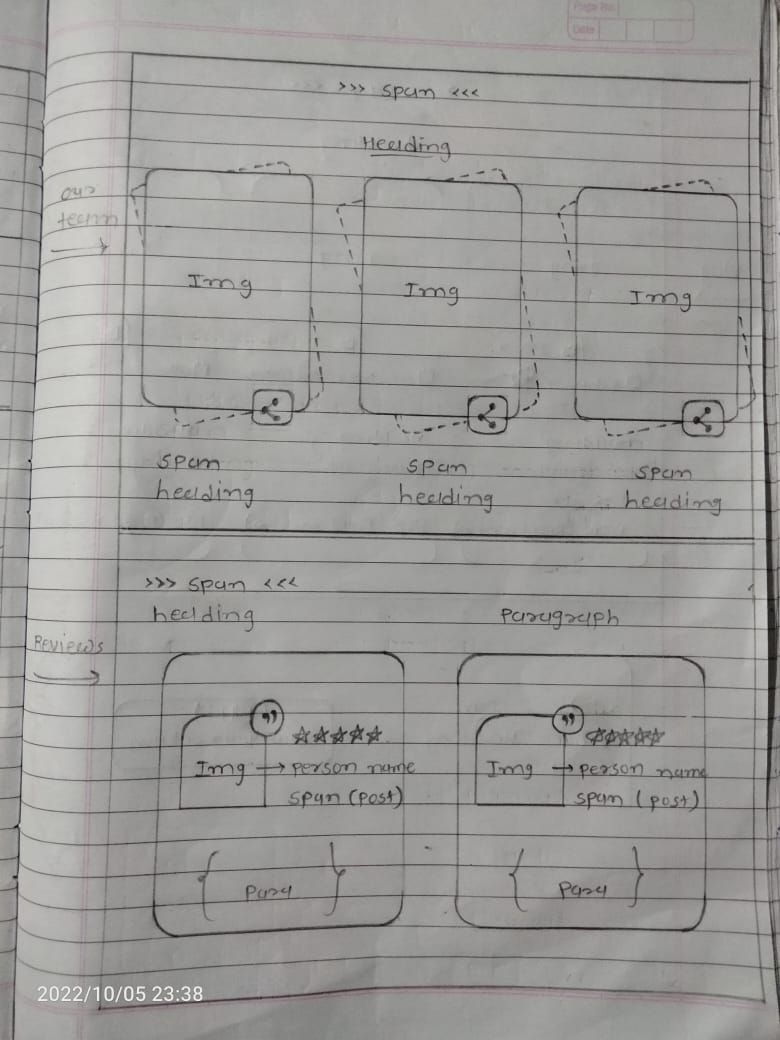 Page No.
Date
>>> span <<<
Heading
our
team
Img
Img
Img
span
span
span
heading
heading
heading
>>> span <<<
heading
Paragraph
Reviews
Img → person name
span (post)
Img → person name
span (post)
{ Para }
{ Para }
2022/10/05 23:38